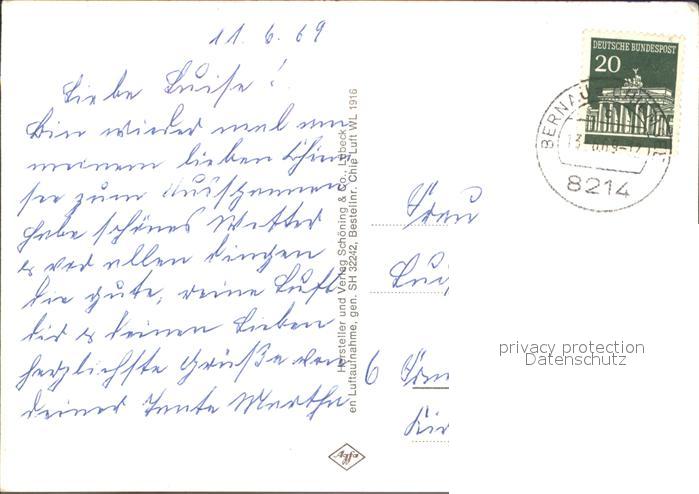 11.6.69
Liebe Luise!
Bin wieder mal am
meinem lieben Chiem
see zum Ausspannen
habe schönes Wetter
& vor allen Dingen
die gute, reine Luft
dir & deinen Lieben
herzlichste Grüße von
deiner Tante Martha
Hersteller und Verlag Schöning & Co., Lübeck
en Luftaufnahme, gen. SH 32242, Bestellnr. Chie Luft WL 1916
Agfa
DEUTSCHE BUNDESPOST
20
BERNAU
8214
Frau
6
privacy protection
Datenschutz